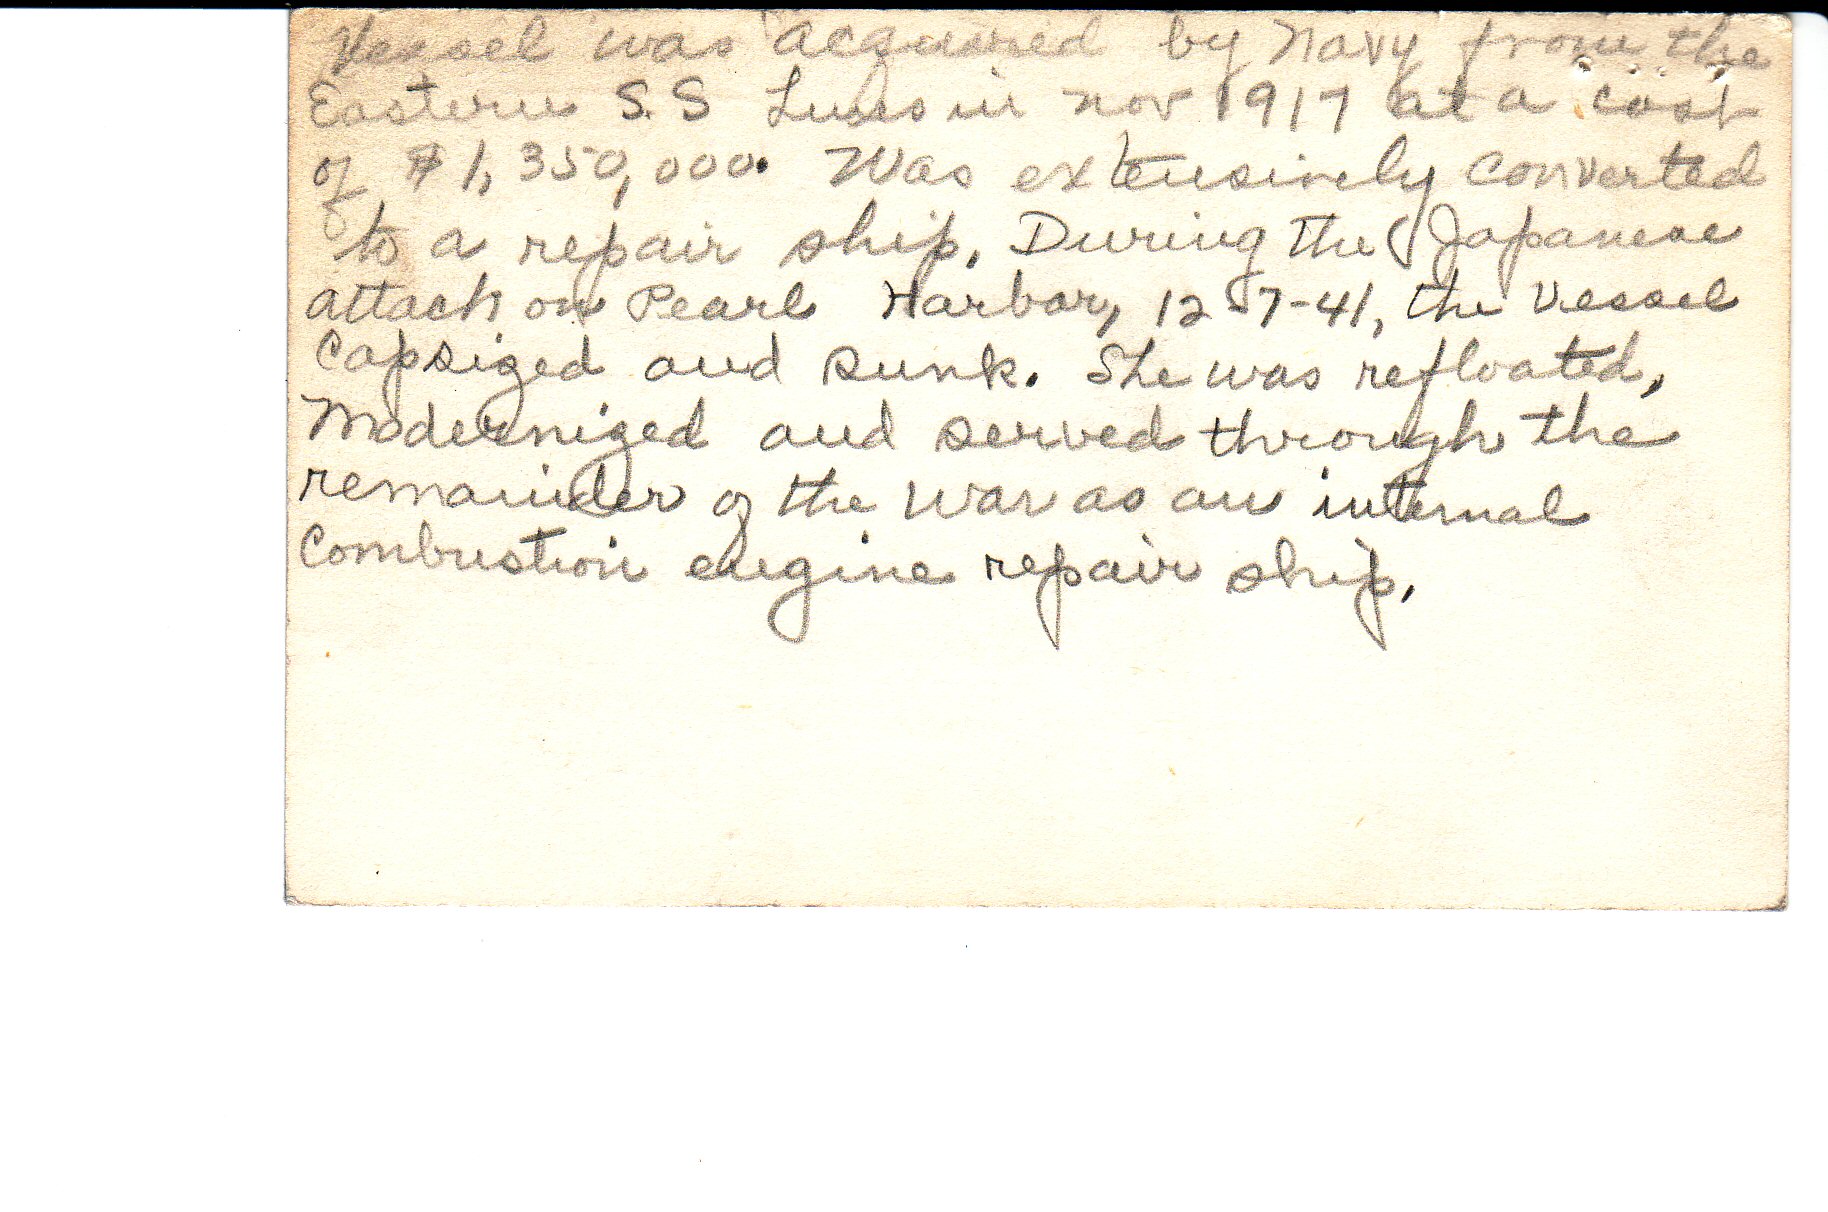 Vessel was acquired by Navy from the
Eastern S.S Lines in Nov 1917 at a cost
of $1,350,000. Was extensively converted
to a repair ship. During the Japanese
attack on Pearl Harbor, 12-7-41, the vessel
capsized and sunk. She was refloated,
modernized and served through the
remainder of the war as an internal
combustion engine repair ship.